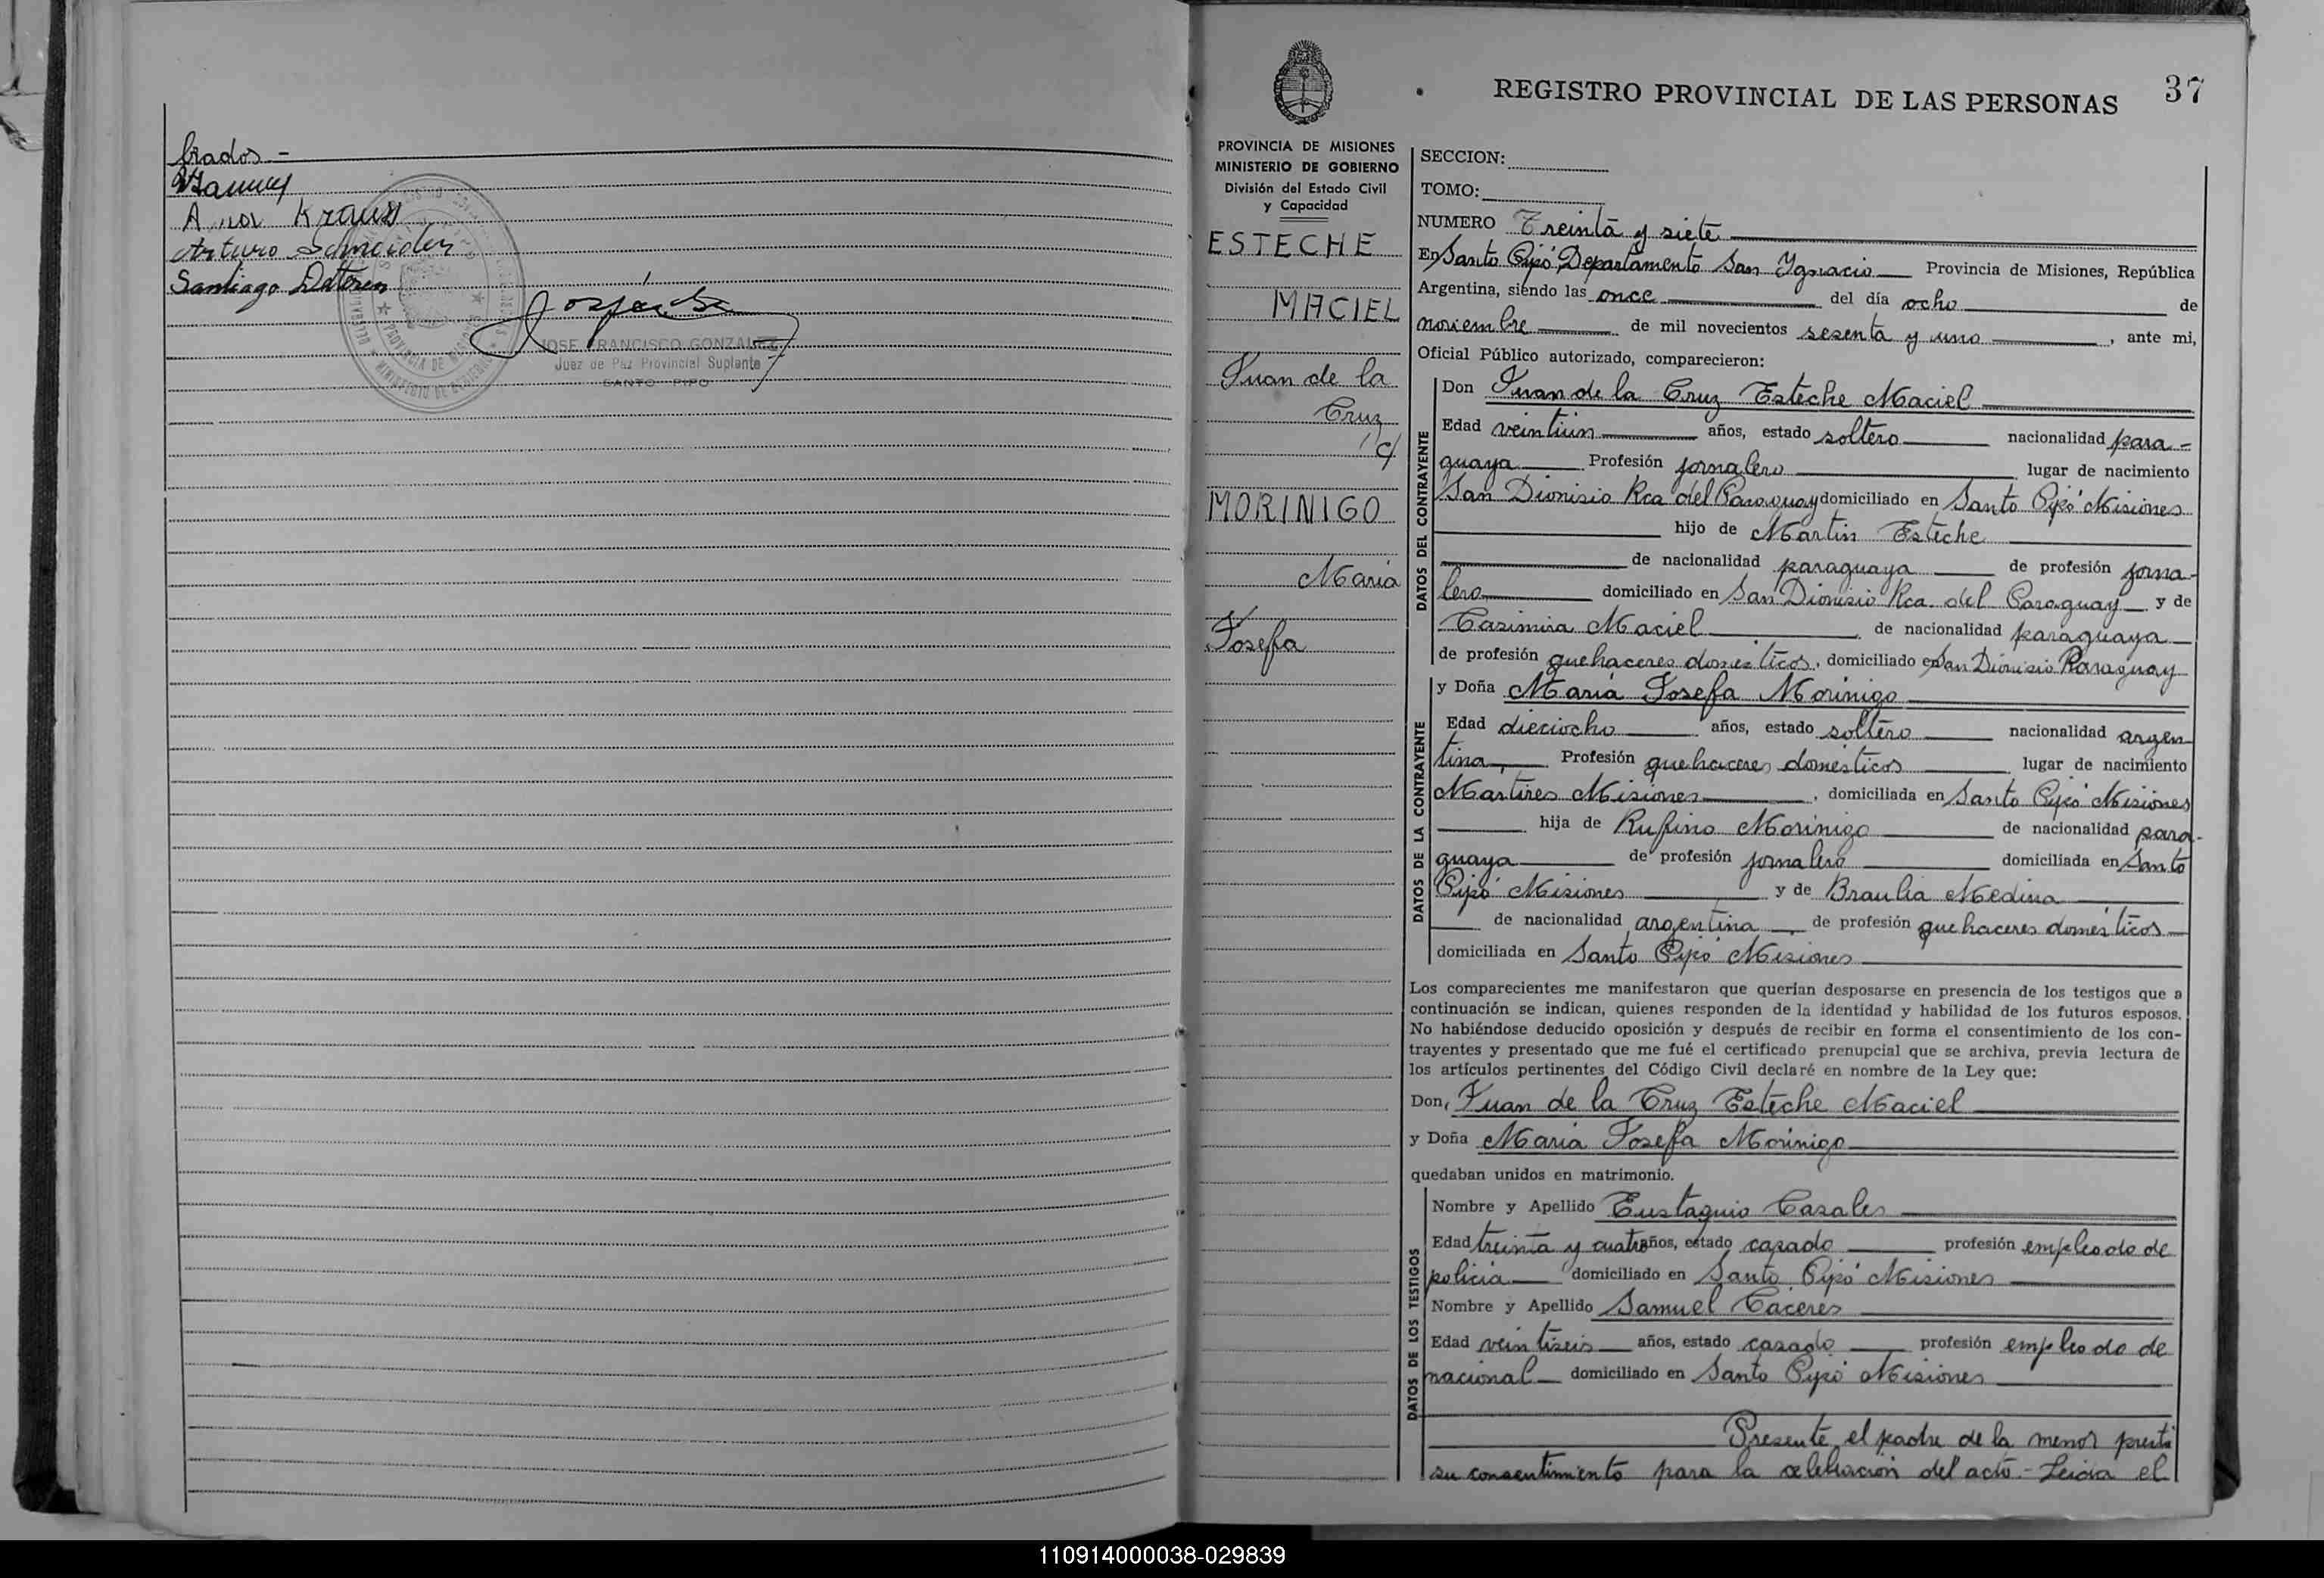 brados.-
Anna Kraus
Arturo Schneider
Santiago
JOSE FRANCISCO GONZALEZ
Juez de Paz Provincial Suplente
SANTO PIPO
PROVINCIA DE MISIONES
MINISTERIO DE GOBIERNO
División del Estado Civil
y Capacidad
ESTECHE
MACIEL
Juan de la
Cruz
c/
MORINIGO
Maria
Josefa
REGISTRO PROVINCIAL DE LAS PERSONAS
37
SECCION:
TOMO:
NUMERO Treinta y siete
En Santo Pipó Departamento San Ygnacio Provincia de Misiones, República
Argentina, siendo las once del día ocho de
noviembre de mil novecientos sesenta y uno, ante mi,
Oficial Público autorizado, comparecieron:
DATOS DEL CONTRAYENTE
Don Juan de la Cruz Esteche Maciel
Edad veintiun años, estado soltero nacionalidad para-
guaya Profesión jornalero lugar de nacimiento
San Dionisio Rca del Paraguay domiciliado en Santo Pipó Misiones
hijo de Martin Esteche
de nacionalidad paraguaya de profesión jorna-
lero domiciliado en San Dionisio Rca. del Paraguay y de
Casimira Maciel de nacionalidad paraguaya
de profesión quehaceres domésticos, domiciliado en San Dionisio Paraguay
DATOS DE LA CONTRAYENTE
y Doña Maria Josefa Morinigo
Edad dieciocho años, estado soltero nacionalidad argen
tina Profesión quehaceres domésticos lugar de nacimiento
Martires Misiones, domiciliada en Santo Pipó Misiones
hija de Rufino Morinigo de nacionalidad para-
guaya de profesión jornalero domiciliada en Santo
Pipó Misiones y de Braulia Medina
de nacionalidad argentina, de profesión quehaceres domésticos
domiciliada en Santo Pipó Misiones
Los comparecientes me manifestaron que querían desposarse en presencia de los testigos que a
continuación se indican, quienes responden de la identidad y habilidad de los futuros esposos.
No habiéndose deducido oposición y después de recibir en forma el consentimiento de los con-
trayentes y presentado que me fué el certificado prenupcial que se archiva, previa lectura de
los artículos pertinentes del Código Civil declaré en nombre de la Ley que:
Don, Juan de la Cruz Esteche Maciel
y Doña Maria Josefa Morinigo
quedaban unidos en matrimonio.
DATOS DE LOS TESTIGOS
Nombre y Apellido Eustaquio Casales
Edad treinta y cuatro años, estado casado profesión empleado de
policia domiciliado en Santo Pipó Misiones
Nombre y Apellido Samuel Caceres
Edad veintiseis años, estado casado profesión empleado de
nacional domiciliado en Santo Pipó Misiones
Presente el padre de la menor presta
su consentimiento para la celebración del acto.- Leida el
110914000038-029839